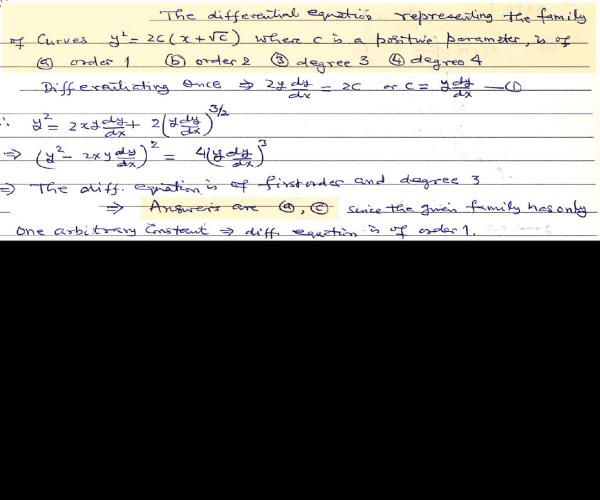 The differential equation representing the family
of Curves y² = 2c(x+√c) where c is a positive parameter, is of
ⓐ order 1 ⓑ order 2 ③ degree 3 ④ degree 4
Differentiating Once ⇒ 2y dy/dx = 2c or c = y dy/dx —(1)
∴ y² = 2xy dy/dx + 2(y dy/dx)^3/2
⇒ (y² - 2xy dy/dx)² = 4(y dy/dx)³
⇒ The diff. equation is of first order and degree 3
⇒ Answers are ⓐ, ⓒ since the given family has only
one arbitrary Constant ⇒ diff. equation is of order 1.